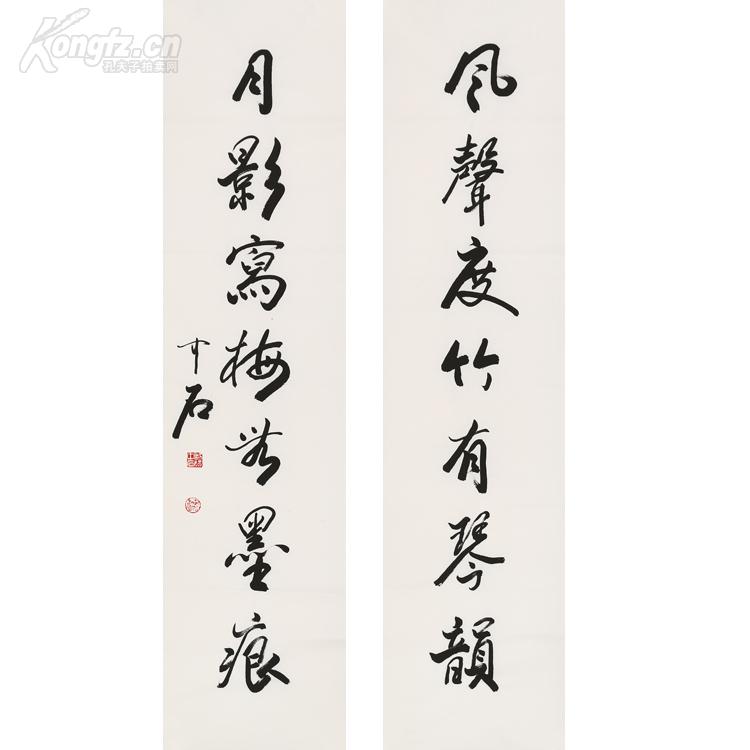 風聲度竹有琴韻
月影寫梅無墨痕
中石
Kongfz.cn
孔夫子拍卖网